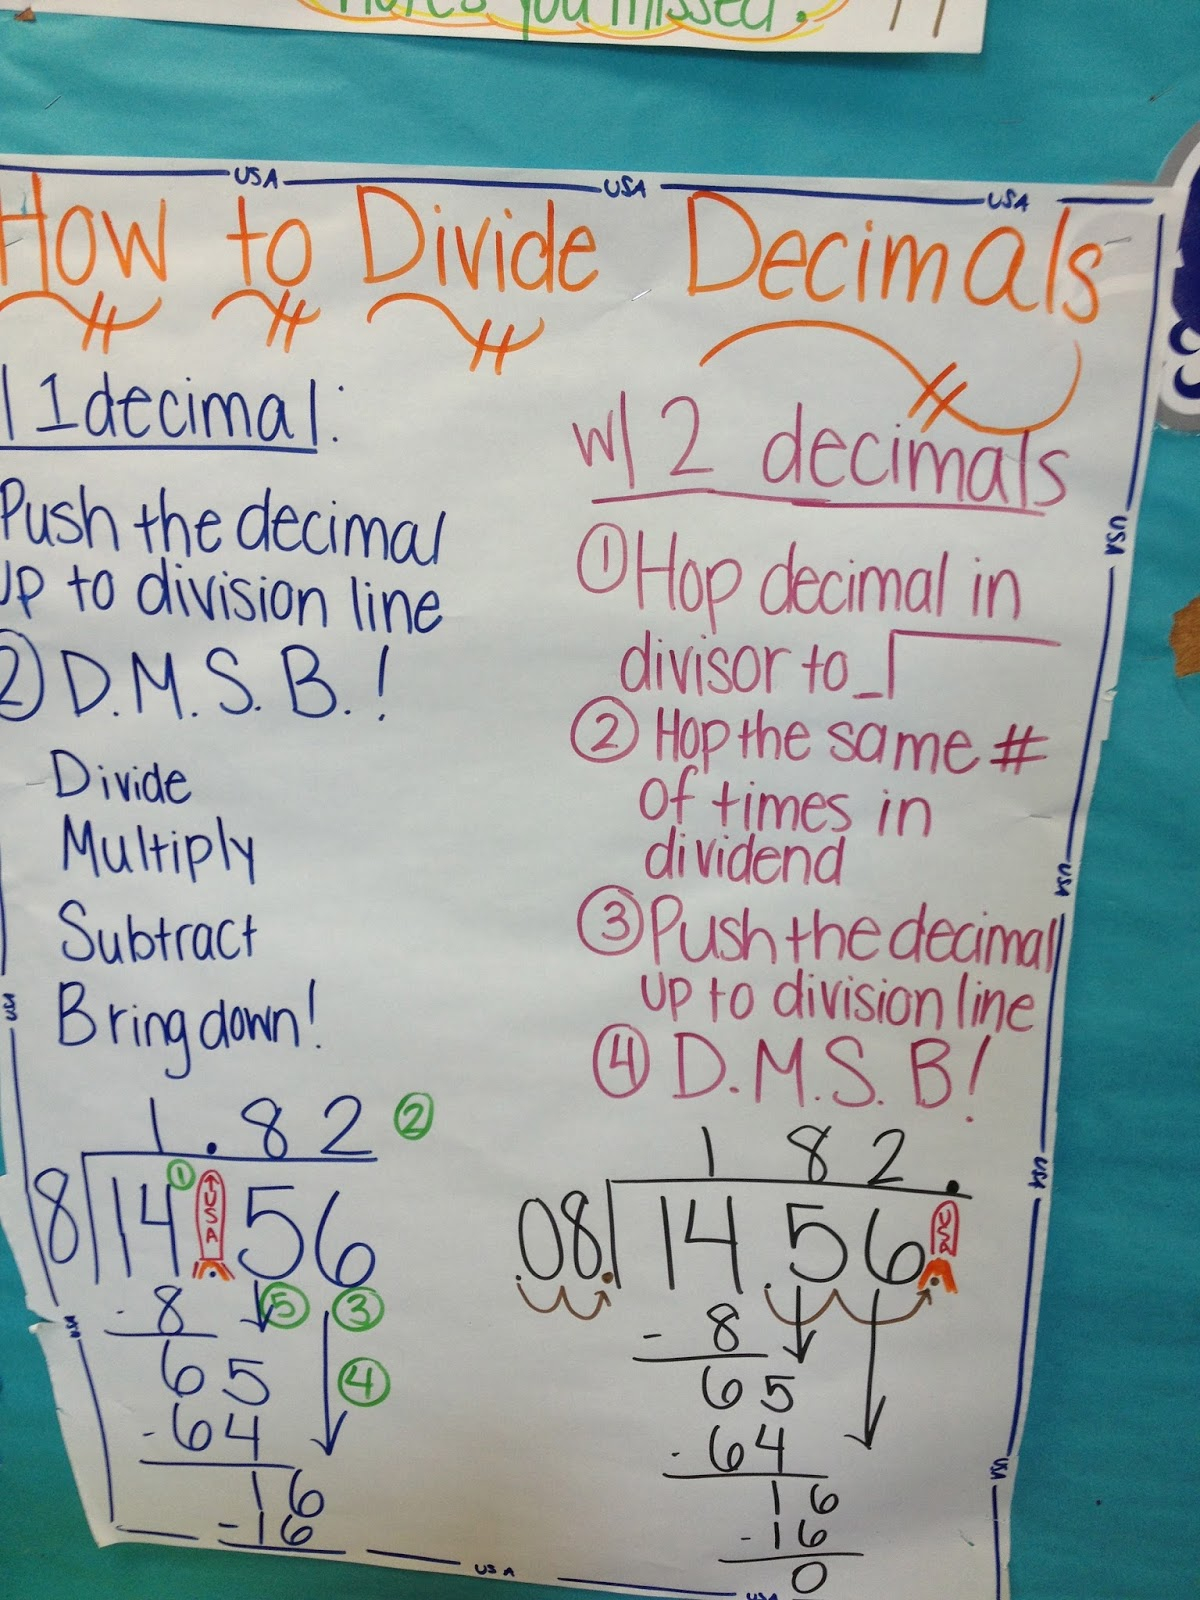 Notes you missed.
USA USA USA
How to Divide Decimals
1 decimal:
Push the decimal
up to division line
② D.M.S.B.!
Divide
Multiply
Subtract
Bring down!
1.82 ②
8 14 ① USA . 56
-8 ⑤ ③
65 ④
-64
16
-16
w/ 2 decimals
① Hop decimal in
divisor to _
② Hop the same #
of times in
dividend
③ Push the decimal
up to division line
④ D.M.S.B!
182.
.08. 14.56. USA
-8
65
-64
16
-16
0
USA
USA
USA
USA
USA
USA
USA
USA